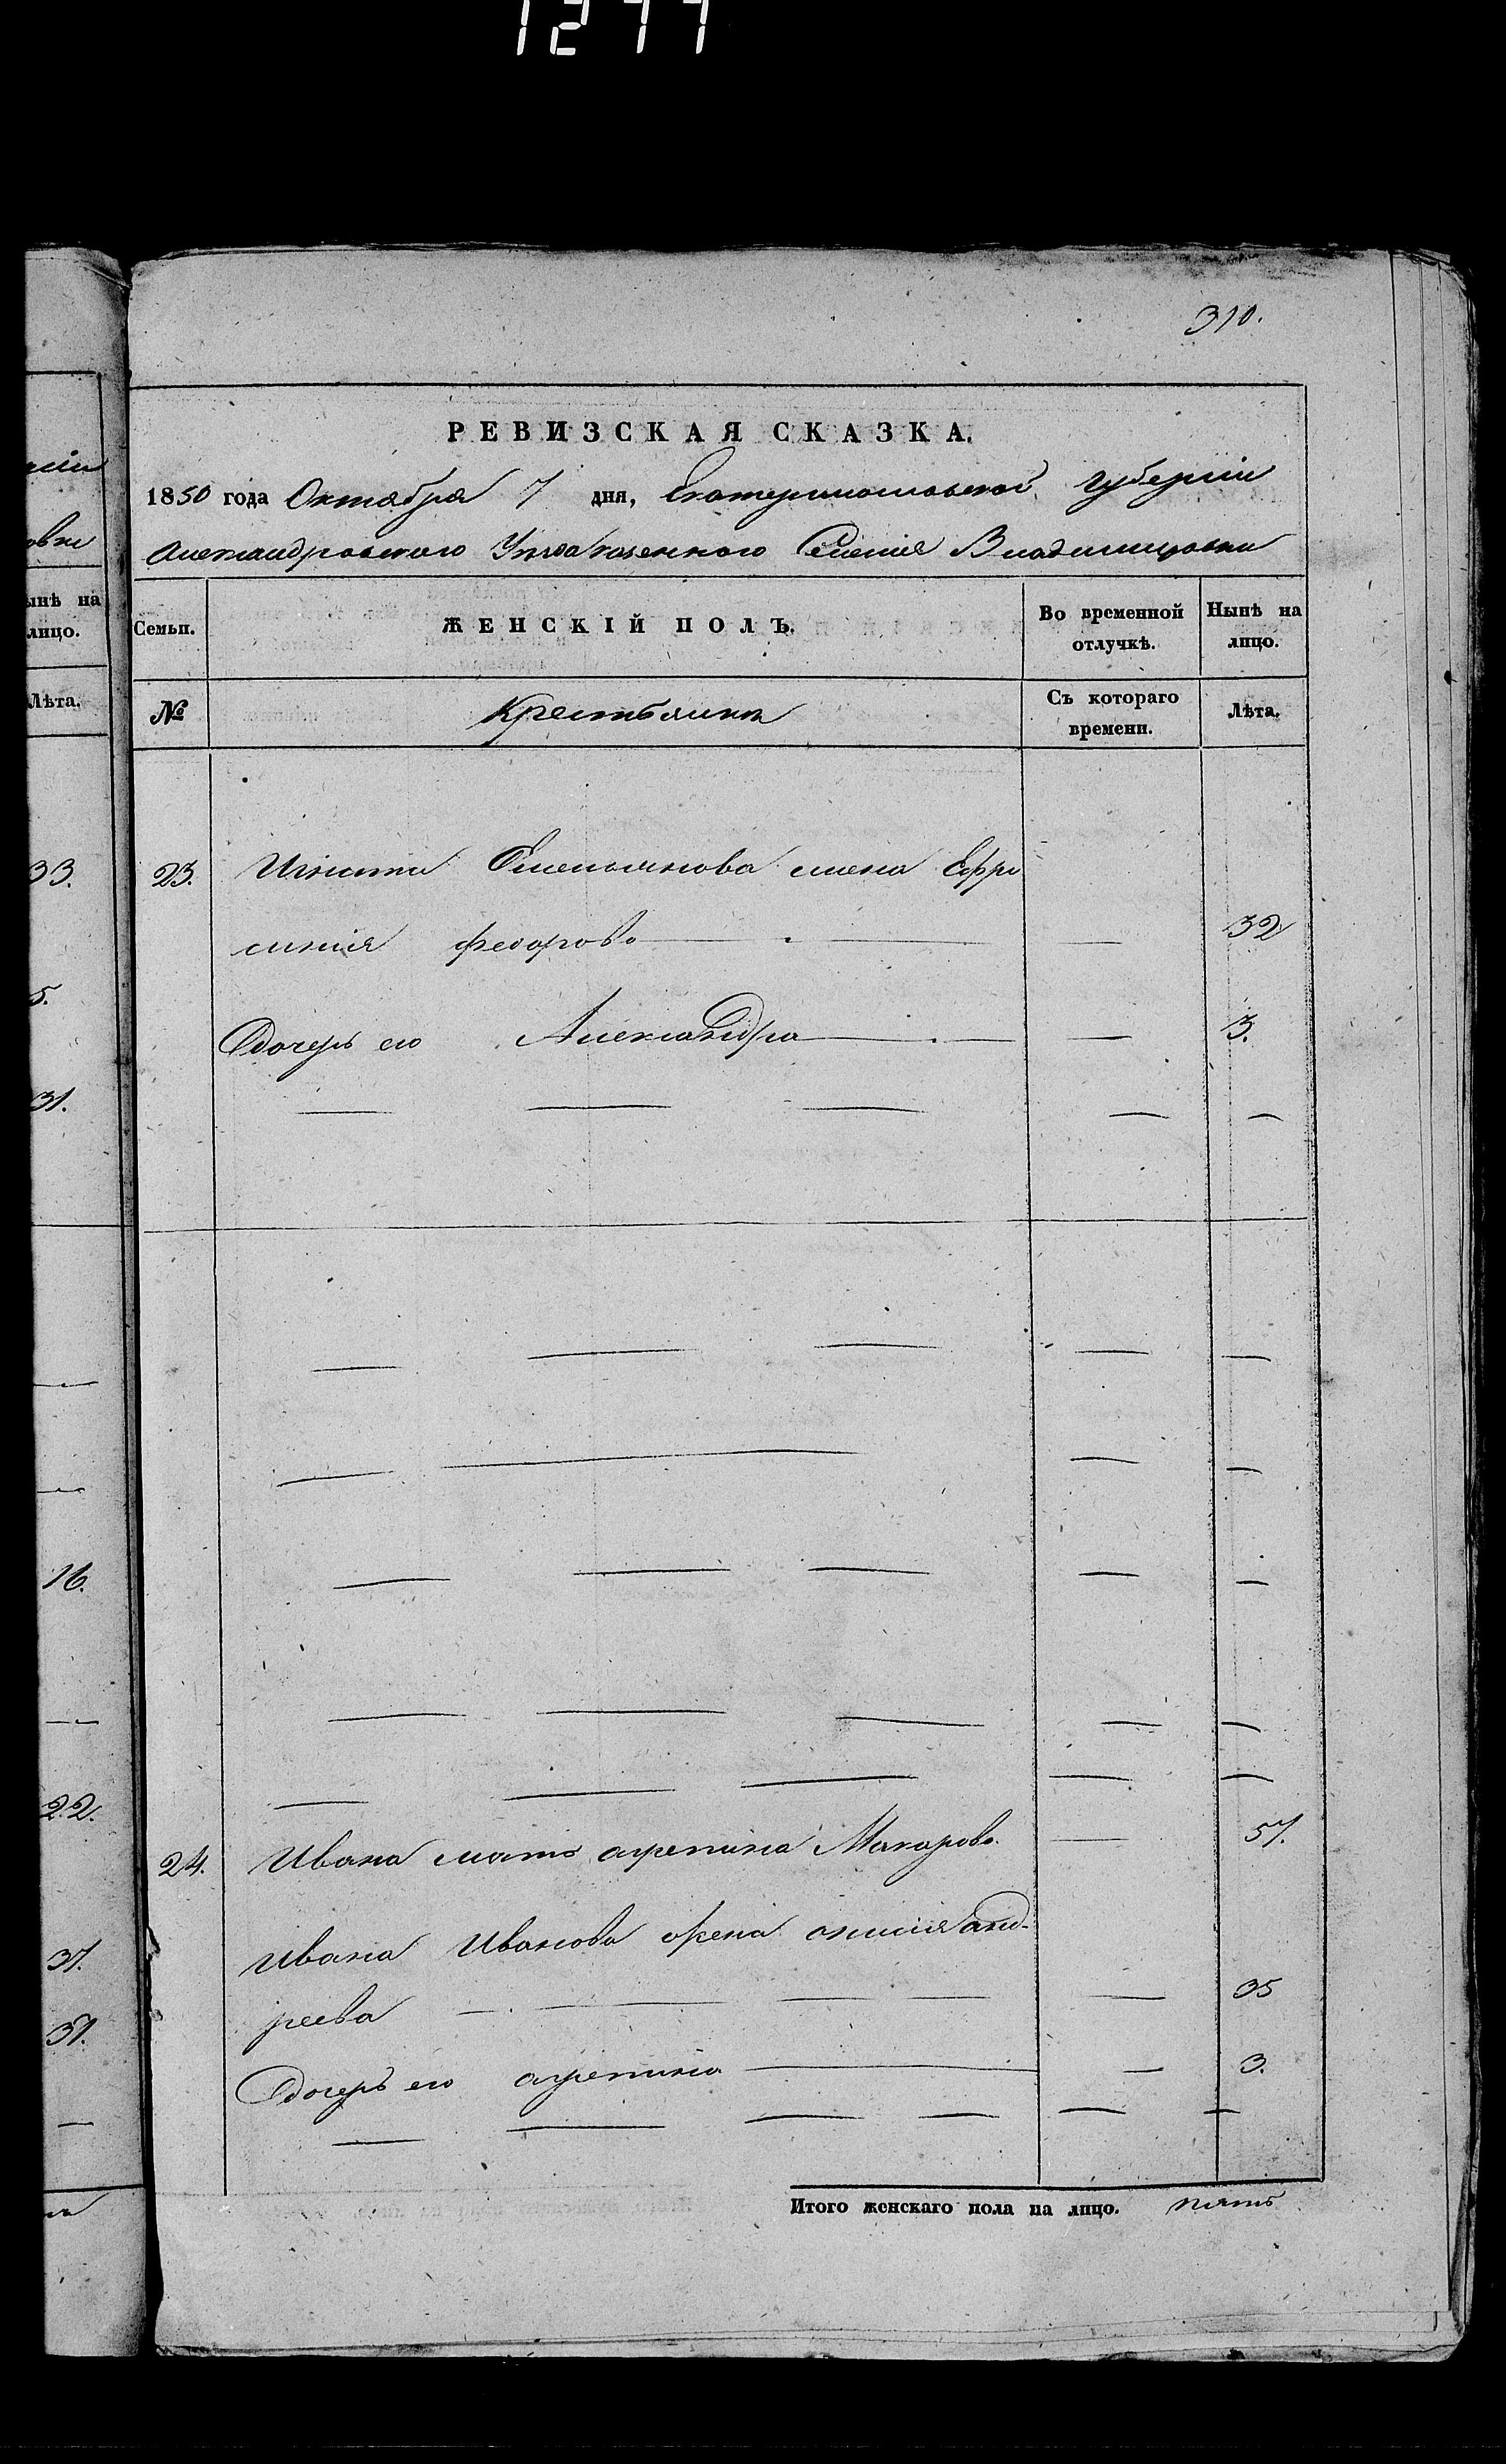 1277
310.
РЕВИЗСКАЯ СКАЗКА.
1850 года Октября 7 дня, Екатеринославской Губерніи
Александровского Уезда казенного Селенія Владимировки
Семьи. ЖЕНСКІЙ ПОЛЪ. Во временной отлучкѣ. Нынѣ на лицо.
№ Крестьяинъ Съ котораго времени. Лѣта.
23. Игната Емельянова жена Ефро
синія федорова — — 32
Дочерь его Александра — — 3.
24. Ивана мать агрепина Макарова — 57.
Ивана Иванова жена анисія анд-
реева — — 35
Дочерь его агрепина — — 3.
Итого женскаго пола на лицо. пять
нѣ на
лицо.
Лѣта.
33.
5.
31.
16.
22.
37.
37.